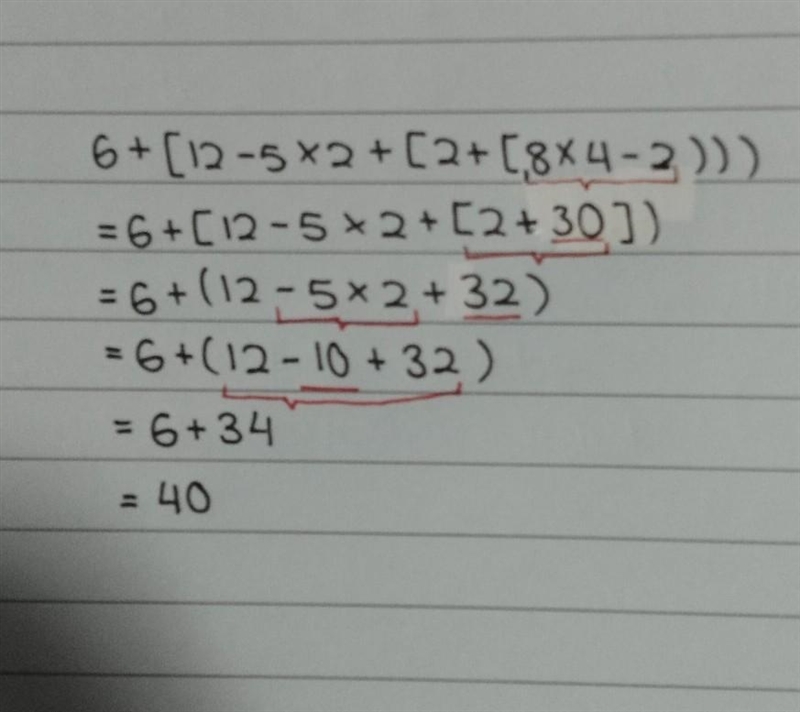 6+[12-5×2+[2+[8×4-2)))
=6+[12-5×2+[2+30])
=6+(12-5×2+32)
=6+(12-10+32)
=6+34
=40